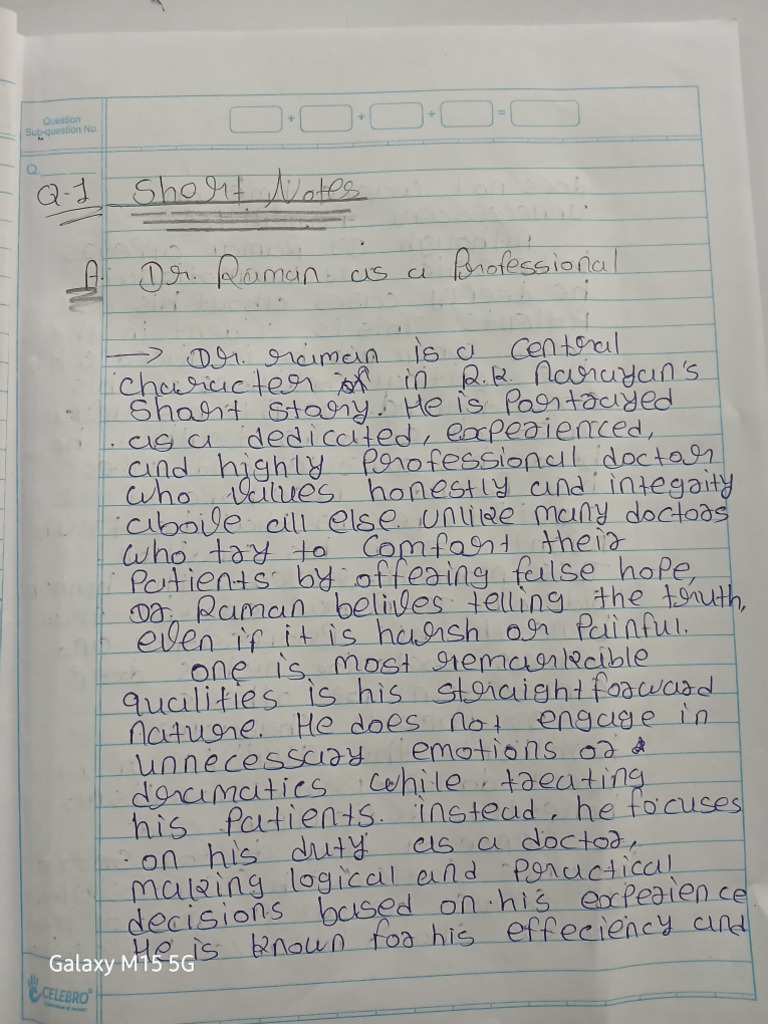 Question
Sub-question No.
+ + + =
Q.
Q-1 Short Notes
A. Dr. Raman as a Professional
→ Dr. raman is a central
character in R.K. Narayan's
Short Story. He is Portrayed
as a dedicated, experienced,
and highly Professional doctor
who values honestly and integrity
above all else. unlike many doctors
who try to Comfort their
Patients by offering false hope,
Dr. Raman belives telling the truth,
even if it is harsh or Painful.
one is most remarkable
qualities is his straightforward
nature. He does not engage in
unnecessary emotions or
dramatics while treating
his Patients. instead, he focuses
on his duty as a doctor,
making logical and Practical
decisions based on his experience
He is known for his effeciency and
Galaxy M15 5G
CELEBRO